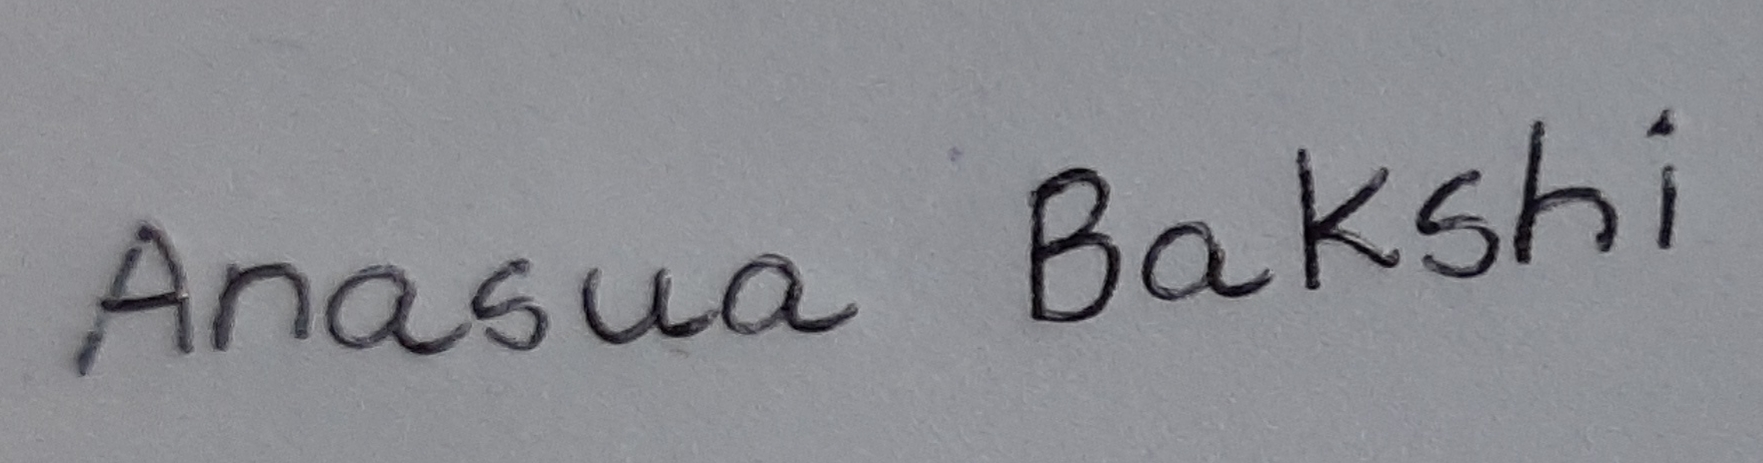 Anasua Bakshi